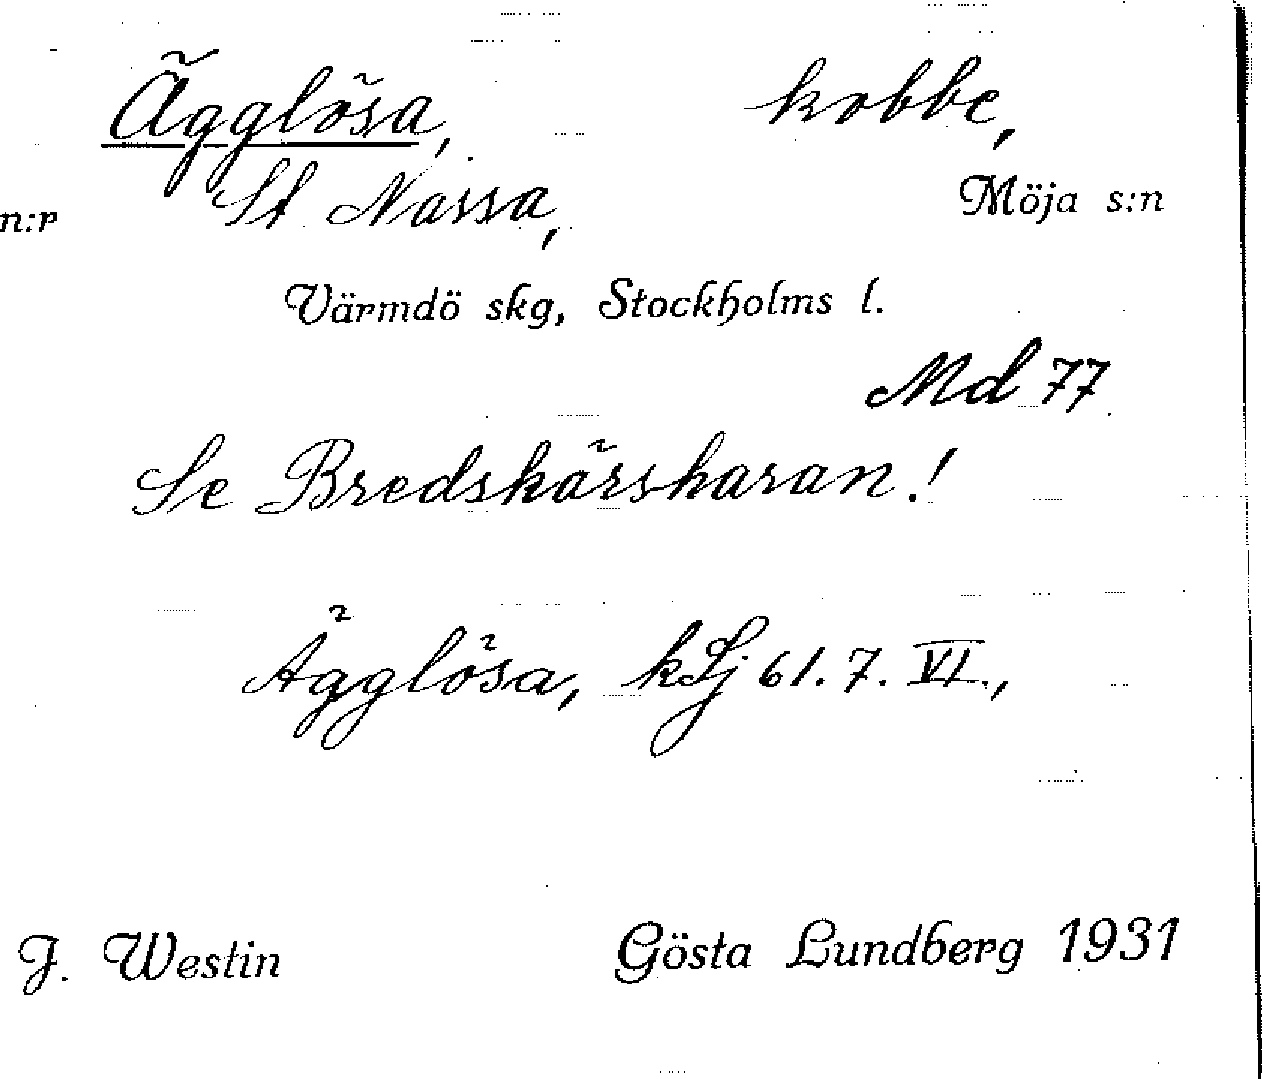 Ägglösa, kobbe,
n:r St Nassa, Möja s:n
Värmdö skg, Stockholms l.
Md 77
Se Bredskärsharan!
Ägglösa, kLj 61. 7. VI.,
J. Westin Gösta Lundberg 1931